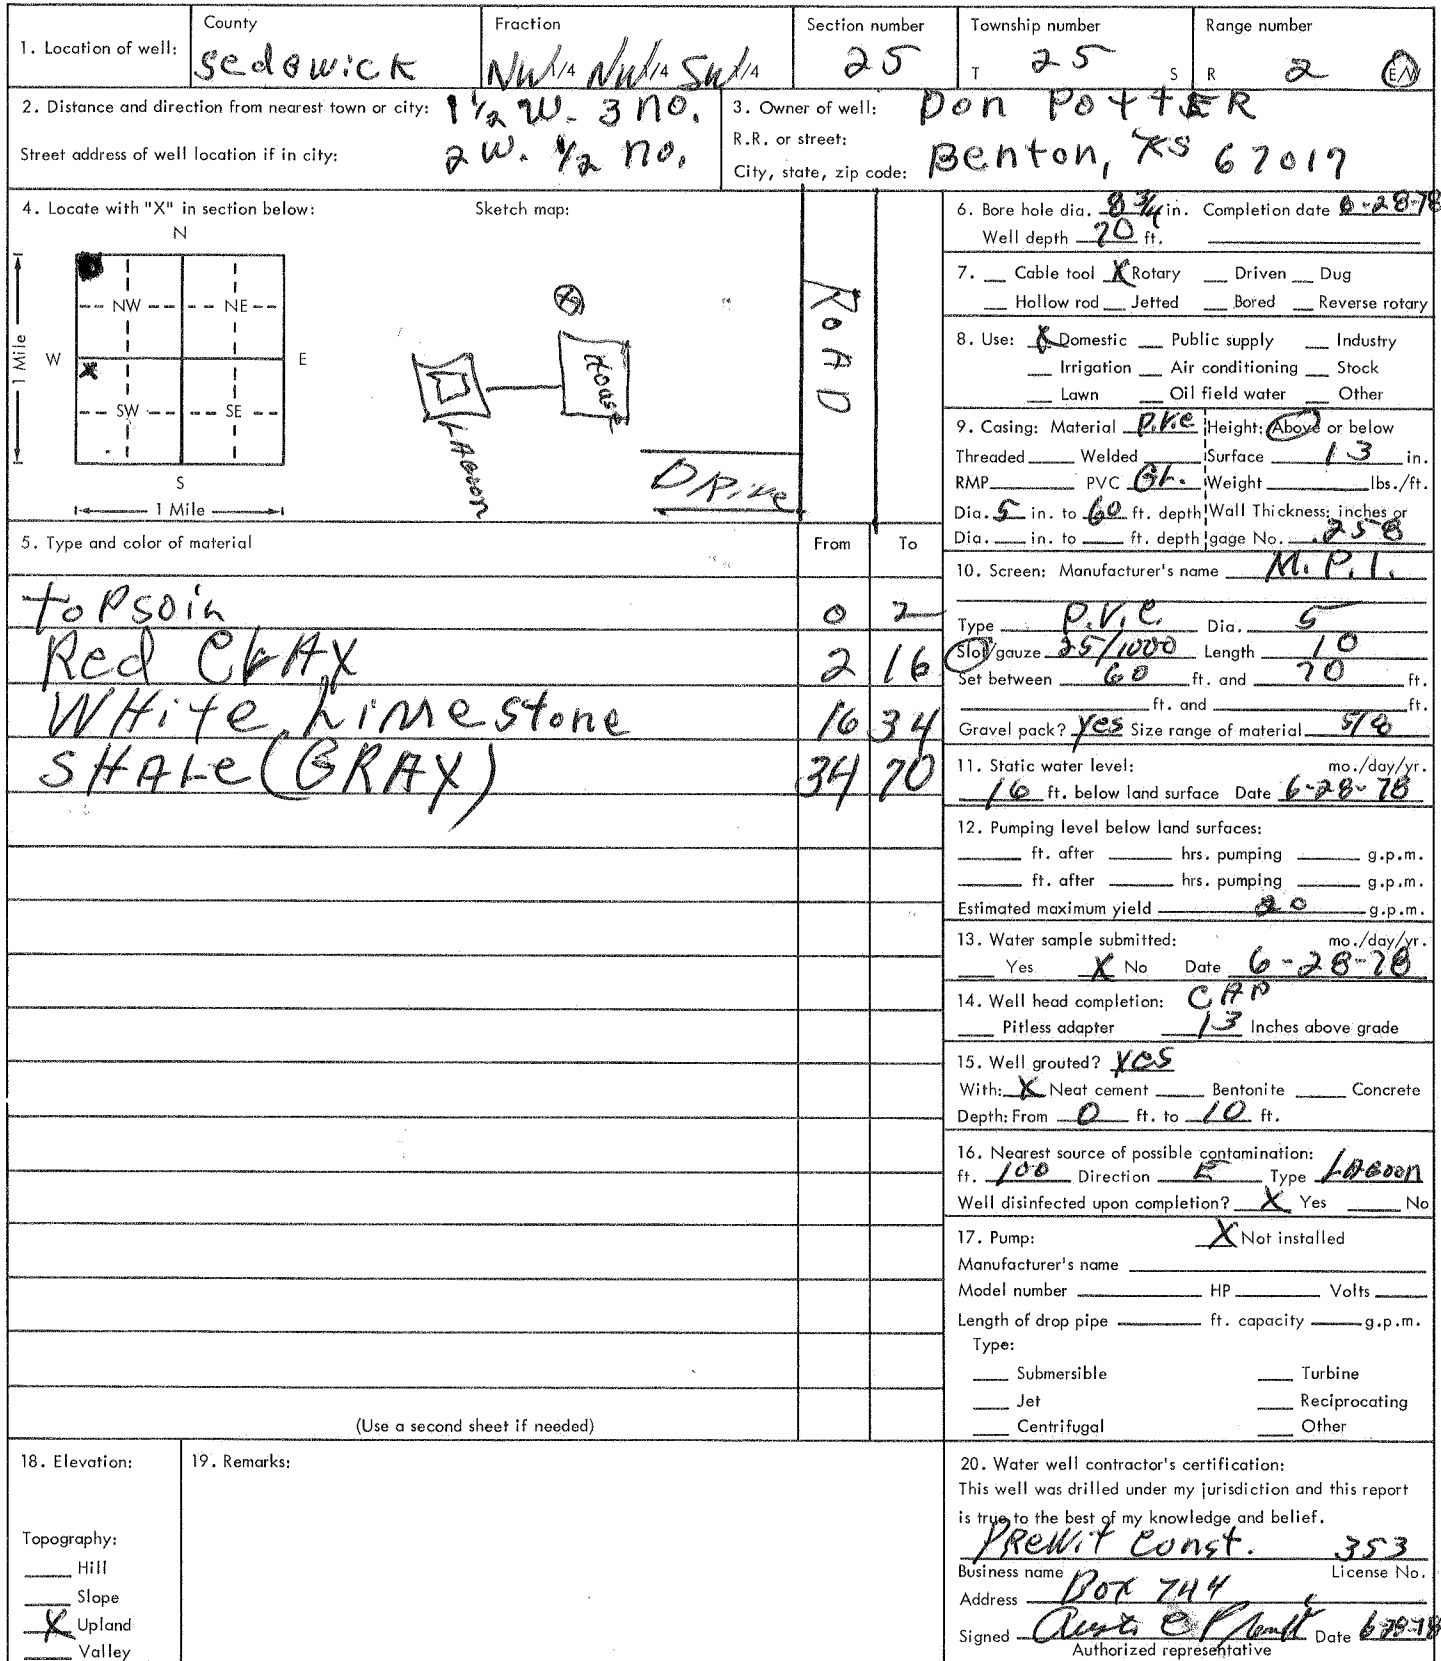 1. Location of well: County Sedgwick Fraction NW 1/4 NW 1/4 SW 1/4 Section number 25 Township number T 25 S Range number R 2 E/W
2. Distance and direction from nearest town or city: 1 1/2 W. 3 no.
Street address of well location if in city: 2 W. 1/2 no.
3. Owner of well: Don PottER
R.R. or street:
City, state, zip code: Benton, KS 67017
4. Locate with "X" in section below: Sketch map:
N
NW NE
W E
X
SW SE
S
1 Mile
1 Mile
House
LAgoon
ROAD
DRive
5. Type and color of material From To
toPsoil 0 2
Red CLAY 2 16
WHite Limestone 16 34
SHALe (GRAY) 34 70
(Use a second sheet if needed)
6. Bore hole dia. 8 3/4 in. Completion date 6-28-78
Well depth 70 ft.
7. Cable tool X Rotary Driven Dug
Hollow rod Jetted Bored Reverse rotary
8. Use: X Domestic Public supply Industry
Irrigation Air conditioning Stock
Lawn Oil field water Other
9. Casing: Material P.V.C Height: Above or below
Threaded Welded Surface 13 in.
RMP PVC GL. Weight lbs./ft.
Dia. 5 in. to 60 ft. depth Wall Thickness: inches or
Dia. in. to ft. depth gage No. .258
10. Screen: Manufacturer's name M.P.I.
Type P.V.C. Dia. 5
Slot/gauze 25/1000 Length 10
Set between 60 ft. and 70 ft.
ft. and ft.
Gravel pack? yes Size range of material 5/8
11. Static water level: mo./day/yr.
16 ft. below land surface Date 6-28-78
12. Pumping level below land surfaces:
ft. after hrs. pumping g.p.m.
ft. after hrs. pumping g.p.m.
Estimated maximum yield 20 g.p.m.
13. Water sample submitted: mo./day/yr.
Yes X No Date 6-28-78
14. Well head completion: CAP
Pitless adapter 13 Inches above grade
15. Well grouted? yes
With: X Neat cement Bentonite Concrete
Depth: From 0 ft. to 10 ft.
16. Nearest source of possible contamination:
ft. 100 Direction E Type LAGoon
Well disinfected upon completion? X Yes No
17. Pump: X Not installed
Manufacturer's name
Model number HP Volts
Length of drop pipe ft. capacity g.p.m.
Type:
Submersible Turbine
Jet Reciprocating
Centrifugal Other
18. Elevation:
Topography:
Hill
Slope
X Upland
Valley
19. Remarks:
20. Water well contractor's certification:
This well was drilled under my jurisdiction and this report
is true to the best of my knowledge and belief.
PReWit Const. 353
Business name License No.
Address Box 744
Signed Date 6-28-78
Authorized representative